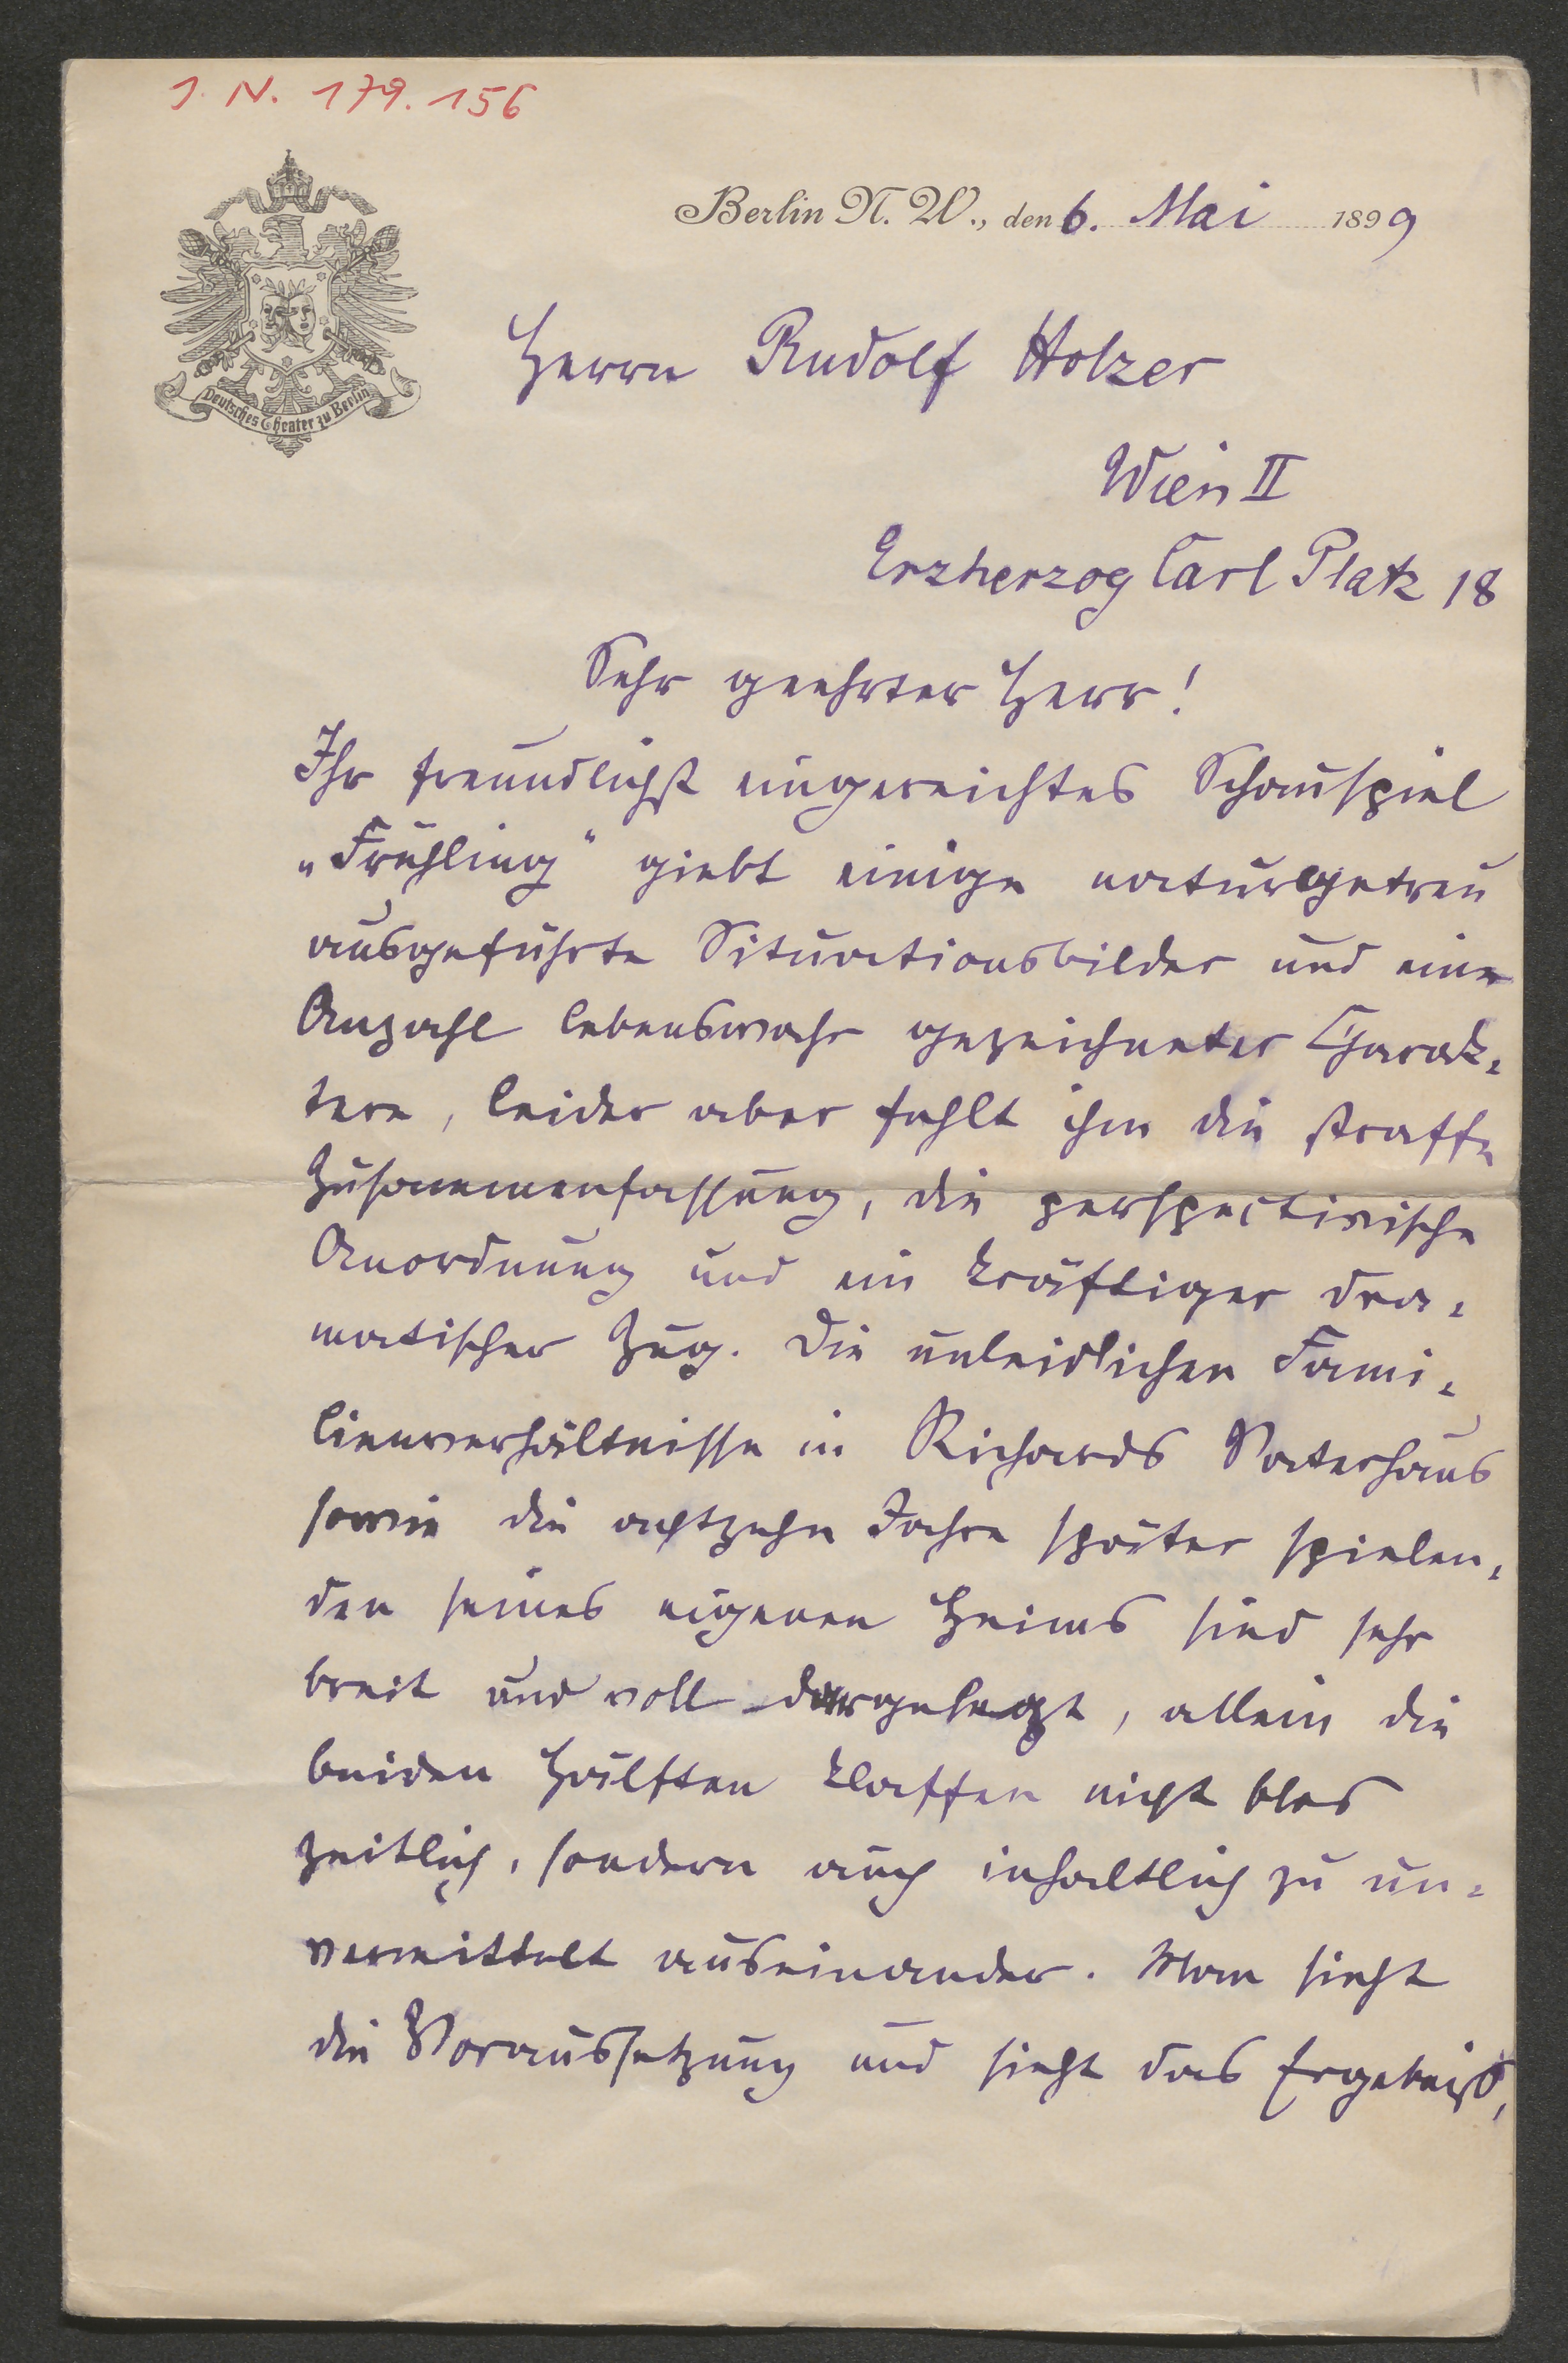 J. N. 179.156
Berlin N. W., den 6. Mai 1899
Deutsches Theater zu Berlin
Herrn Rudolf Holzer
Wien II
Erzherzog Carl Platz 18
Sehr geehrter Herr!
Ihr freundlichst eingereichtes Schauspiel
„Frühling“ giebt einige naturgetreu
ausgeführte Situationsbilder und eine
Anzahl lebenswahr gezeichneter Charak-
tere, leider aber fehlt ihm die straffe
Zusammenfassung, die perspectivische
Anordnung und ein kräftiger dra-
matischer Zug. Die unleidlichen Fami-
lienverhältnisse in Richards Vaterhaus
sowie die achtzehn Jahre später spielen-
den seines eigenen Heims sind sehr
breit und voll dargelegt, allein die
beiden Hälften klaffen nicht blos
zeitlich, sondern auch inhaltlich zu un-
vermittelt auseinander. Man sieht
die Voraussetzung und sieht das Ergebniß,